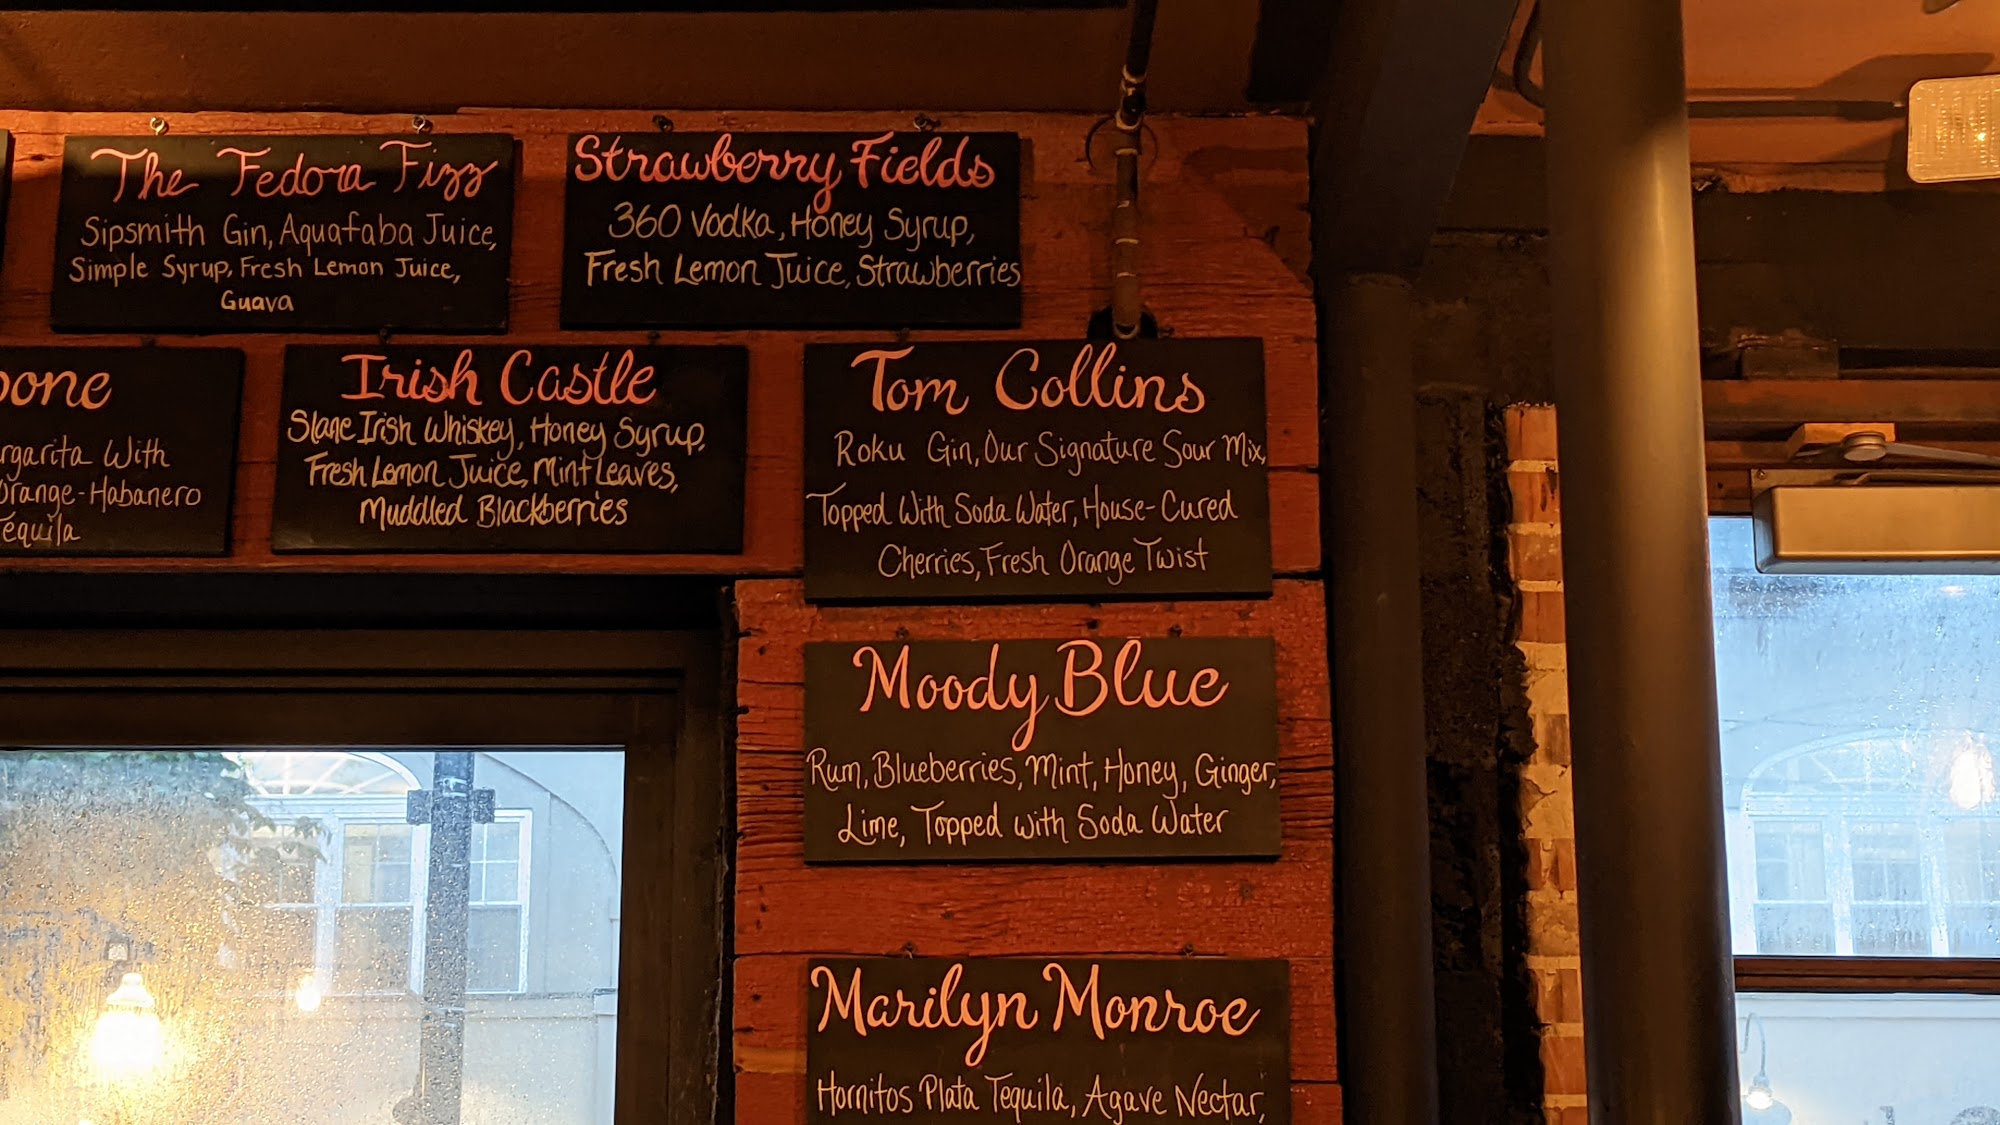 The Fedora Fizz
Sipsmith Gin, Aquafaba Juice,
Simple Syrup, Fresh Lemon Juice,
Guava
Strawberry Fields
360 Vodka, Honey Syrup,
Fresh Lemon Juice, Strawberries
With
Orange-Habanero
Tequila
Irish Castle
Slane Irish Whiskey, Honey Syrup,
Fresh Lemon Juice, Mint Leaves,
Muddled Blackberries
Tom Collins
Roku Gin, Our Signature Sour Mix,
Topped With Soda Water, House-Cured
Cherries, Fresh Orange Twist
Moody Blue
Rum, Blueberries, Mint, Honey, Ginger,
Lime, Topped with Soda Water
Marilyn Monroe
Hornitos Plata Tequila, Agave Nectar,